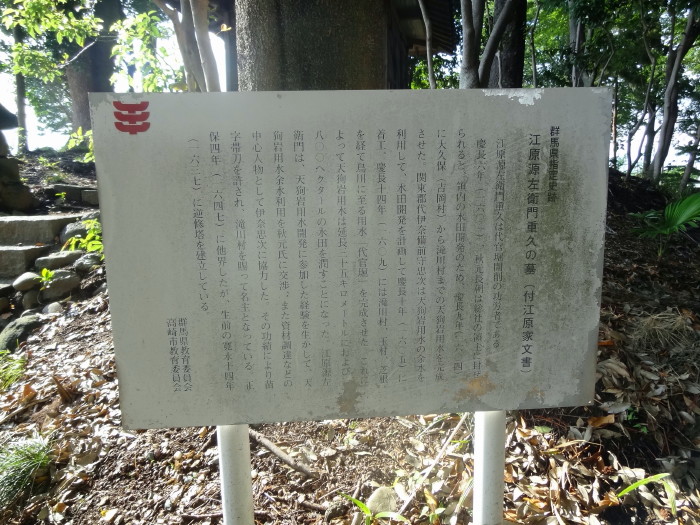 群馬県指定史跡
江原源左衛門重久の墓（付江原家文書）
江原源左衛門重久は代官堀開削の功労者である。
慶長六年（一六〇一）、秋元長朝は総社の領主に封
ぜられると、領内の水田開発のため、慶長九年（一六〇四）
に大久保（吉岡村）から滝川村までの天狗岩用水を完成
させた。関東郡代伊奈備前守忠次は天狗岩用水の余水を
利用して、水田開発を計画して慶長十年（一六〇五）に
着工、慶長十四年（一六〇九）には滝川村、玉村、芝根
を経て烏川に至る用水（代官堀）を完成させた。これに
よって天狗岩用水は延長二十五キロメートルにおよび
八〇〇ヘクタールの水田を潤すことになった。江原源左
衛門は、天狗岩用水開発に参加した経験を生かして、天
狗岩用水余水利用を秋元氏に交渉、また資材調達などの
中心人物として伊奈忠次に協力した。その功績により苗
字帯刀を許され、滝川村を賜って名主となっている。正
保四年（一六四七）に他界したが、生前の寛永十四年
（一六三七）に逆修塔を建立している。
群馬県教育委員会
高崎市教育委員会